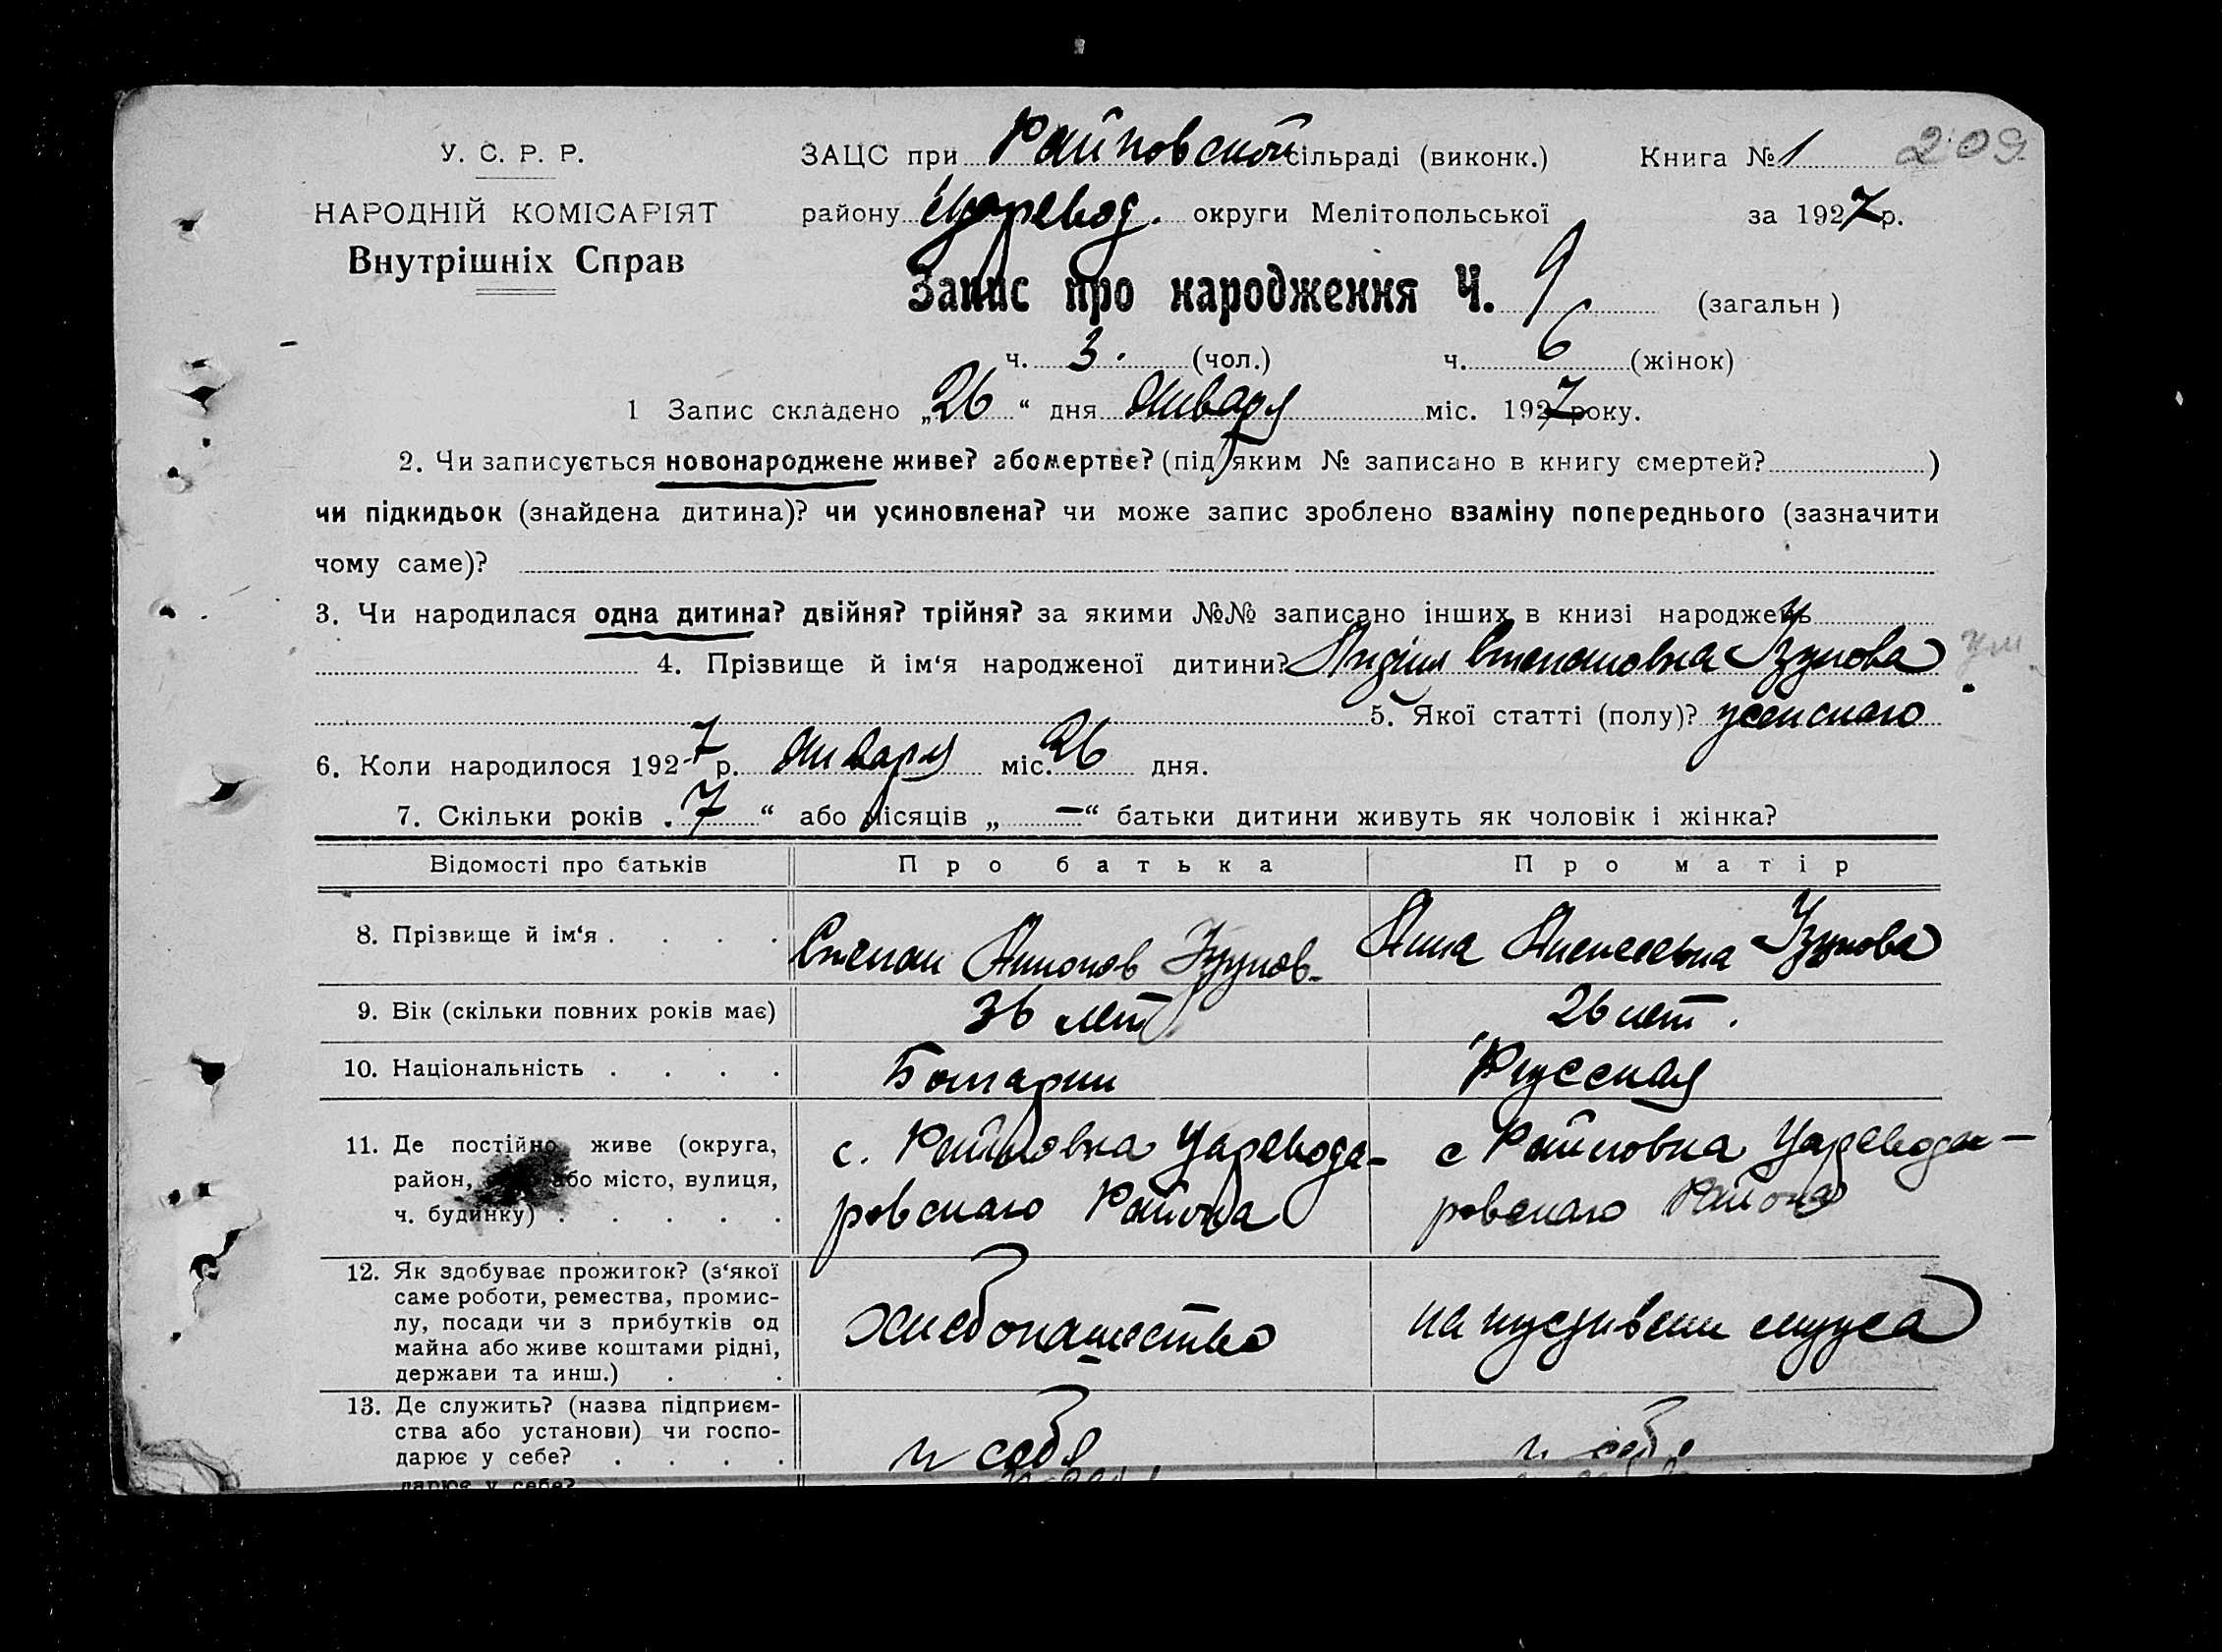 У. С. Р. Р.
НАРОДНІЙ КОМІСАРІЯТ
Внутрішніх Справ
ЗАЦС при Райновской сільраді (виконк.) Книга № 1 209
району Царевод. округи Мелітопольської за 1927 р.
Запис про народження Ч. 9 (загальн )
ч. 3. (чол.) ч. 6 (жінок)
1 Запис складено „26“ дня Января міс. 1927 року.
2. Чи записується новонароджене живе? або мертве? (під яким № записано в книгу смертей? )
чи підкидьок (знайдена дитина)? чи усиновлена? чи може запис зроблено взаміну попереднього (зазначити
чому саме)?
3. Чи народилася одна дитина? двійня? трійня? за якими №№ записано інших в книзі народжень
4. Прізвище й ім‘я народженої дитини? Лидия Степановна Узунова ум
5. Якої статті (полу)? женскаго
6. Коли народилося 1927 р. Января міс. 26 дня.
7. Скільки років „7“ або місяців „—“ батьки дитини живуть як чоловік і жінка?
Відомості про батьків Про батька Про матір
8. Прізвище й ім‘я . . . . Степан Узунов Анна Алексеевна Узунова
9. Вік (скільки повних років має) 36 лет 26 лет.
10. Національність . . . . Болгарин Русская
11. Де постійно живе (округа,
район, або місто, вулиця,
ч. будинку) . . . . .
с. Райновка Царевода-
ровскаго Района
с Райновка Царевода-
ровскаго Района
12. Як здобуває прожиток? (з‘якої
саме роботи, ремества, промис-
лу, посади чи з прибутків од
майна або живе коштами рідні,
держави та инш.) . . .
хлебопашество
на иждивении мужа
13. Де служить? (назва підприєм-
ства або установи) чи госпо-
дарює у себе? . . . .
у себя
у себя
дарює у себе?